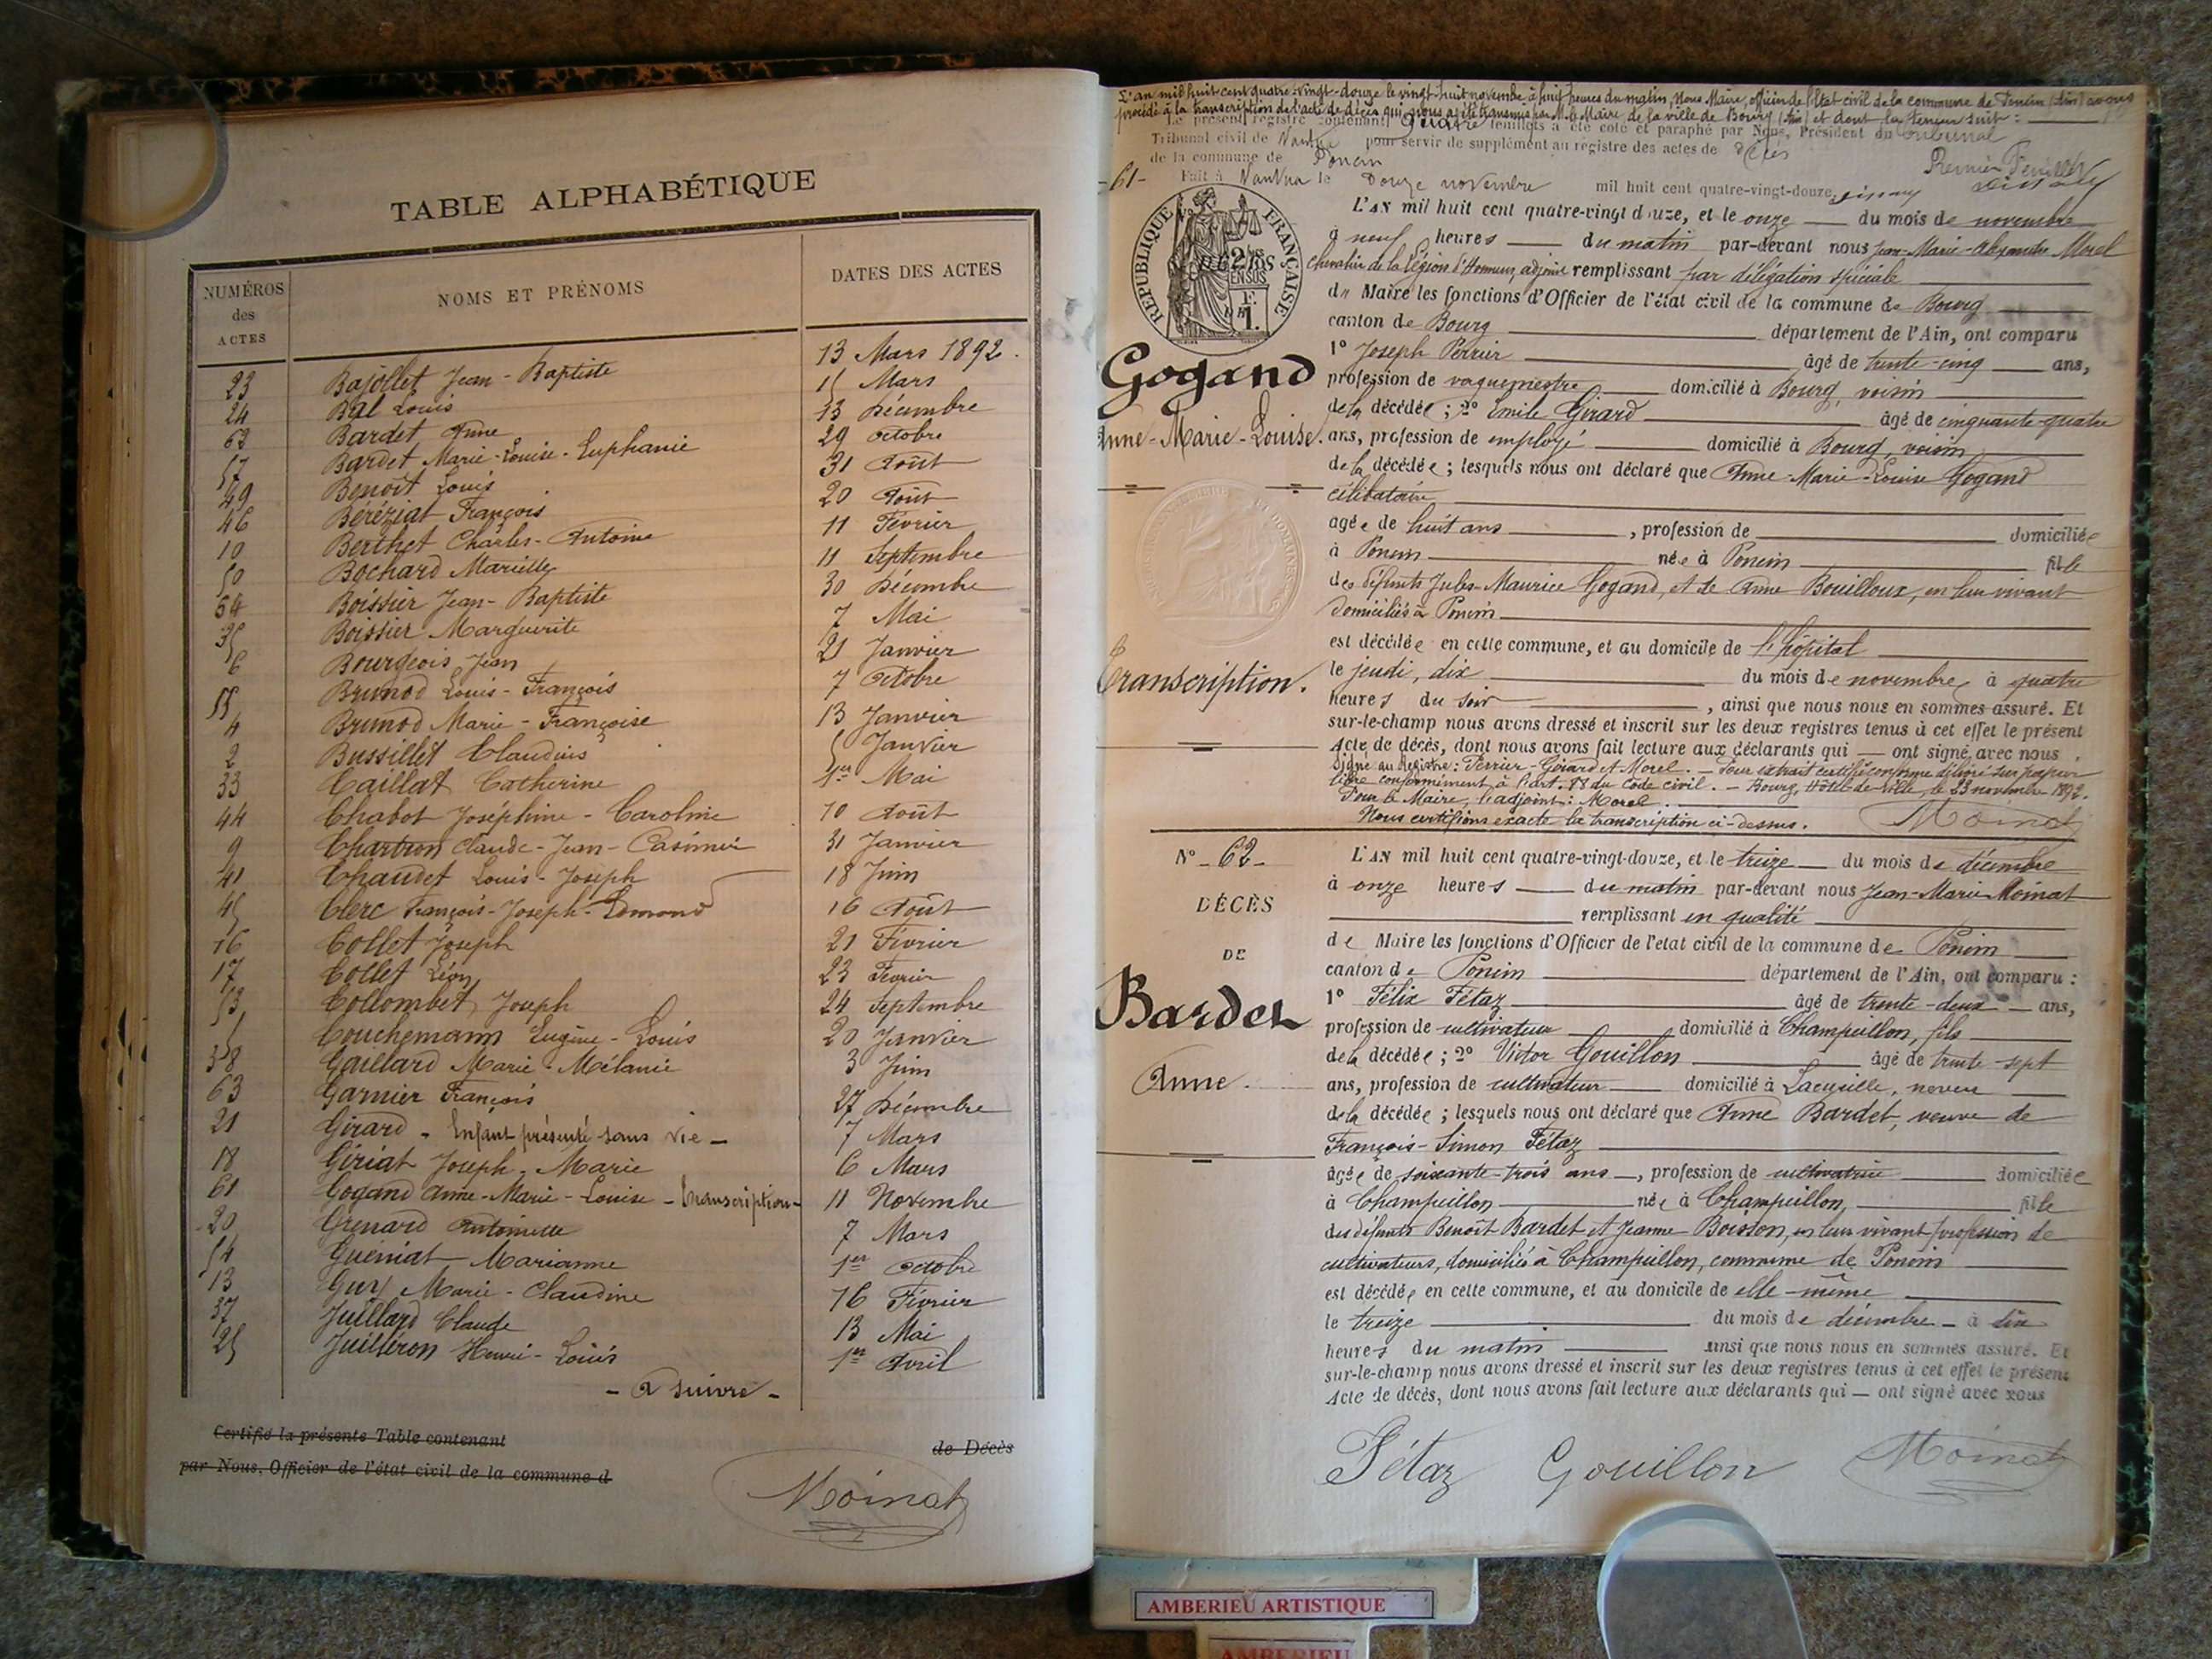 TABLE ALPHABÉTIQUE
NUMÉROS des ACTES
NOMS ET PRÉNOMS
DATES DES ACTES
23 Bajollet Jean-Baptiste 13 Mars 1892.
24 Bal Louis 15 Mars
62 Bardet Anne 13 Décembre
57 Bardet Marie-Louise-Euphanie 29 Octobre
49 Benoît Louis 31 Août
46 Béréziat François 20 Août
10 Berthet Charles-Antoine 11 Février
50 Bochard Mariette 11 Septembre
64 Boissier Jean-Baptiste 30 Décembre
35 Boissier Marguerite 7 Mai
6 Bourgeois Jean 21 Janvier
55 Brunod Louis-François 7 Octobre
4 Brunod Marie-Françoise 13 Janvier
2 Bussillet Claudius 5 Janvier
33 Caillat Catherine 1er Mai
44 Chabot Joséphine-Caroline 10 Août
9 Chartron Claude-Jean-Casimir 31 Janvier
41 Chaudet Louis-Joseph 18 Juin
45 Clerc François-Joseph-Edmond 16 Août
16 Collet Joseph 21 Février
17 Collet Léon 23 Février
53 Collombet Joseph 24 Septembre
5 Couchemann Eugène-Louis 20 Janvier
38 Gaillard Marie-Mélanie 3 Juin
63 Garnier François 27 Décembre
21 Girard - Enfant présenté sans vie - 7 Mars
18 Giriat Joseph-Marie 6 Mars
61 Gogand Anne-Marie-Louise - Transcription - 11 Novembre
20 Grenard Antoinette 7 Mars
54 Gueniat Marianne 1er Octobre
13 Guy Marie-Claudine 16 Février
37 Juillard Claude 13 Mai
25 Juilléron Henri-Louis 1er Avril
- A suivre -
Certifié la présente Table contenant de Décès
par Nous, Officier de l'état civil de la commune d
Moinat
L'an mil huit cent quatre-vingt-douze le vingt-huit novembre à huit heures du matin, Nous Maire, officier de l'Etat civil de la commune de Poncin (Ain) avons
procédé à la transcription de l'acte de décès qui nous a été transmis par M. le Maire de la ville de Bourg (Ain) et dont la teneur suit :
Le présent registre contenant quatre feuillets a été coté et paraphé par Nous, Président du Tribunal
Tribunal civil de Nantua pour servir de supplément au registre des actes de décès
de la commune de Poncin
Premier Feuillet
-61- Fait à Nantua le Douze novembre mil huit cent quatre-vingt-douze
REPUBLIQUE FRANÇAISE
L'AN mil huit cent quatre-vingt douze, et le onze du mois de novembre
à neuf heures du matin par-devant nous Jean-Marie-Alexandre Morel
Chevalier de la Légion d'Honneur, adjoint remplissant par délégation spéciale
du Maire les fonctions d'Officier de l'état civil de la commune de Bourg
canton de Bourg département de l'Ain, ont comparu
Gogand
1° Joseph Perrier âgé de trente-cinq ans,
profession de vaguemestre domicilié à Bourg, voisin
de la décédée ; 2° Emile Girard âgé de cinquante-quatre
Anne-Marie-Louise.
ans, profession de employé domicilié à Bourg, voisin
de la décédée ; lesquels nous ont déclaré que Anne-Marie-Louise Gogand
célibataire
agée de huit ans, profession de domiciliée
à Poncin née à Poncin fille
des défunts Jules-Maurice Gogand, et de Anne Bouilloux, en leur vivant
domiciliés à Poncin
est décédée en cette commune, et au domicile de l'hôpital
Transcription.
le jeudi, dix du mois de novembre à quatre
heures du soir, ainsi que nous nous en sommes assuré. Et
sur-le-champ nous avons dressé et inscrit sur les deux registres tenus à cet effet le présent
Acte de décès, dont nous avons fait lecture aux déclarants qui — ont signé avec nous.
Signé au Registre : Perrier - Girard et Morel. - Pour extrait certifié conforme délivré sur papier
libre conformément à l'art. 98 du Code civil. - Bourg, Hôtel-de-Ville, le 23 novembre 1892.
Pour le Maire, l'adjoint : Morel.
Nous certifions exacte la transcription ci-dessus. Moinat
N° -62-
L'AN mil huit cent quatre-vingt-douze, et le treize du mois de décembre
à onze heures du matin par-devant nous Jean-Marie Moinat
DÉCÈS
remplissant en qualité
DE
de Maire les fonctions d'Officier de l'etat civil de la commune de Poncin
canton de Poncin département de l'Ain, ont comparu :
Bardet
1° Félix Fétaz âgé de trente-deux ans,
profession de cultivateur domicilié à Champeillon, fils
de la décédée ; 2° Victor Gouillon âgé de trente-sept
Anne.
ans, profession de cultivateur domicilié à Lacueille, neveu
de la décédée ; lesquels nous ont déclaré que Anne Bardet, veuve de
François-Simon Fétaz
âgée de soixante-trois ans, profession de cultivatrice domiciliée
à Champeillon née à Champeillon, fille
des défunts Benoît Bardet et Jeanne Boisson, en leur vivant profession de
cultivateurs, domiciliés à Champeillon, commune de Poncin
est décédée en cette commune, et au domicile de elle-même
le treize du mois de décembre - à six
heures du matin ainsi que nous nous en sommes assuré. Et
sur-le-champ nous avons dressé et inscrit sur les deux registres tenus à cet effet le présent
Acte de décès, dont nous avons fait lecture aux déclarants qui — ont signé avec nous
Fétaz Gouillon Moinat
AMBERIEU ARTISTIQUE
AMBERIEU